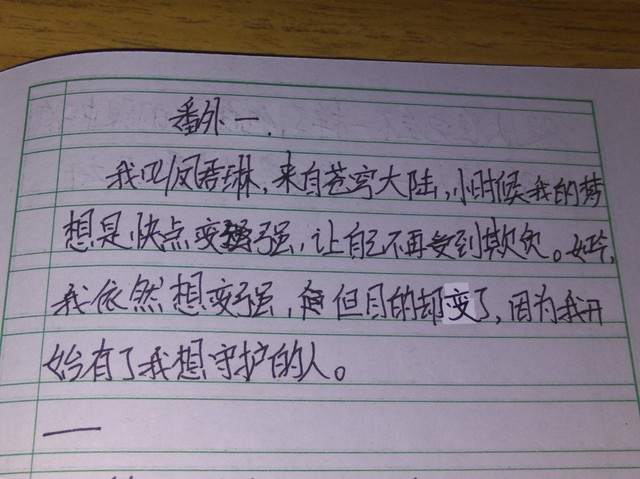 番外一.
我叫凤君琳,来自苍穹大陆,小时候我的梦
想是快点变强强,让自己不再受到欺负。如今,
我依然想变强,但目的却变了,因为我开
始有了我想守护的人。